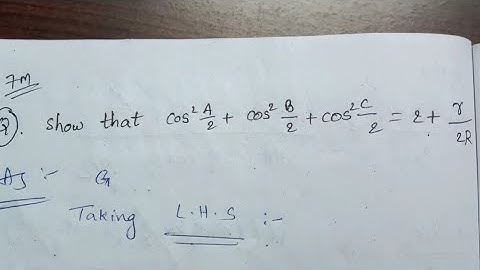 7M
Q. show that cos² A/2 + cos² B/2 + cos² C/2 = 2 + r/2R
As :- G
Taking L.H.S :-